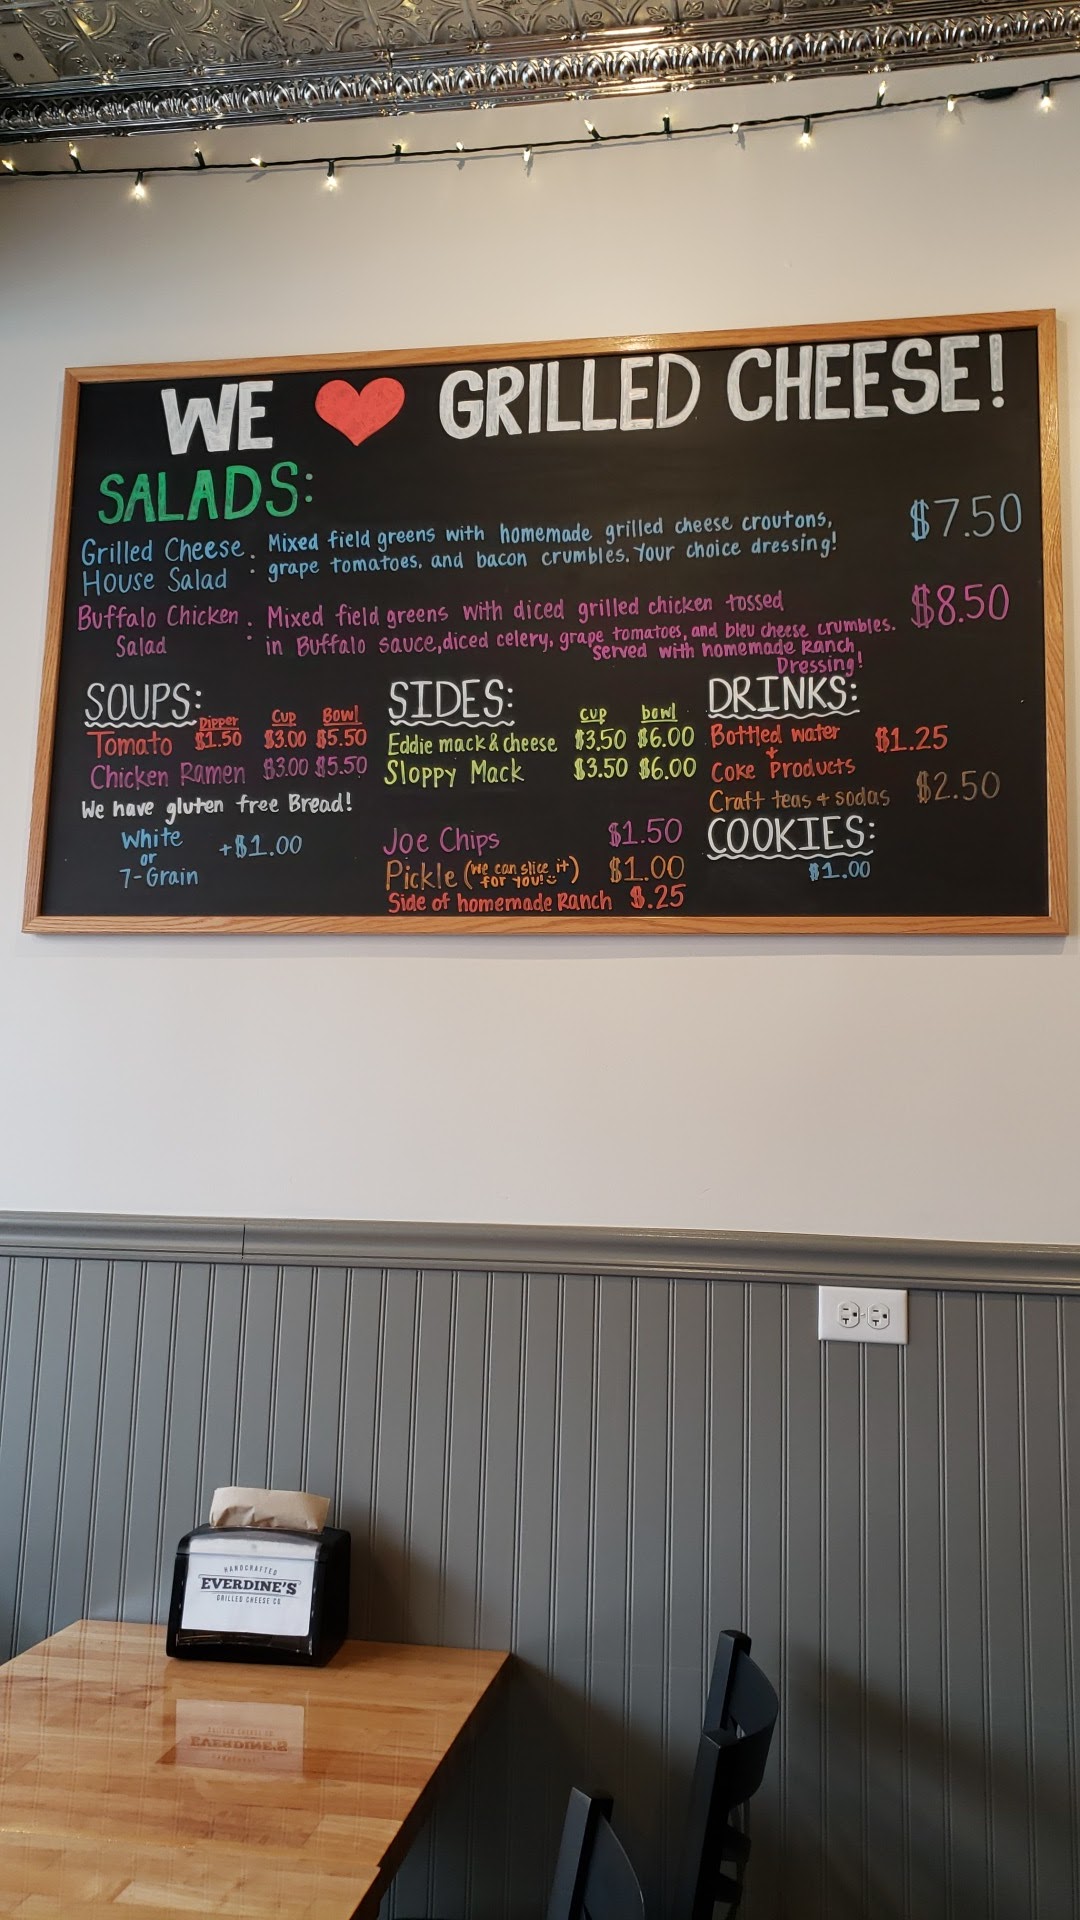 WE ❤ GRILLED CHEESE!
SALADS:
Grilled Cheese House Salad : Mixed field greens with homemade grilled cheese croutons, $7.50
grape tomatoes. and bacon crumbles. Your choice dressing!
Buffalo Chicken Salad : Mixed field greens with diced grilled chicken tossed $8.50
in Buffalo sauce, diced celery, grape tomatoes, and bleu cheese crumbles.
Served with homemade Ranch
Dressing!
SOUPS:
Dipper Cup Bowl
Tomato $1.50 $3.00 $5.50
Chicken Ramen $3.00 $5.50
We have gluten free Bread!
White
or +$1.00
7-Grain
SIDES:
cup bowl
Eddie mack & cheese $3.50 $6.00
Sloppy Mack $3.50 $6.00
Joe Chips $1.50
Pickle (we can slice it for you!) $1.00
Side of homemade Ranch $.25
DRINKS:
Bottled water
+ $1.25
Coke Products
Craft teas + sodas $2.50
COOKIES:
$1.00
HANDCRAFTED
EVERDINE'S
GRILLED CHEESE CO